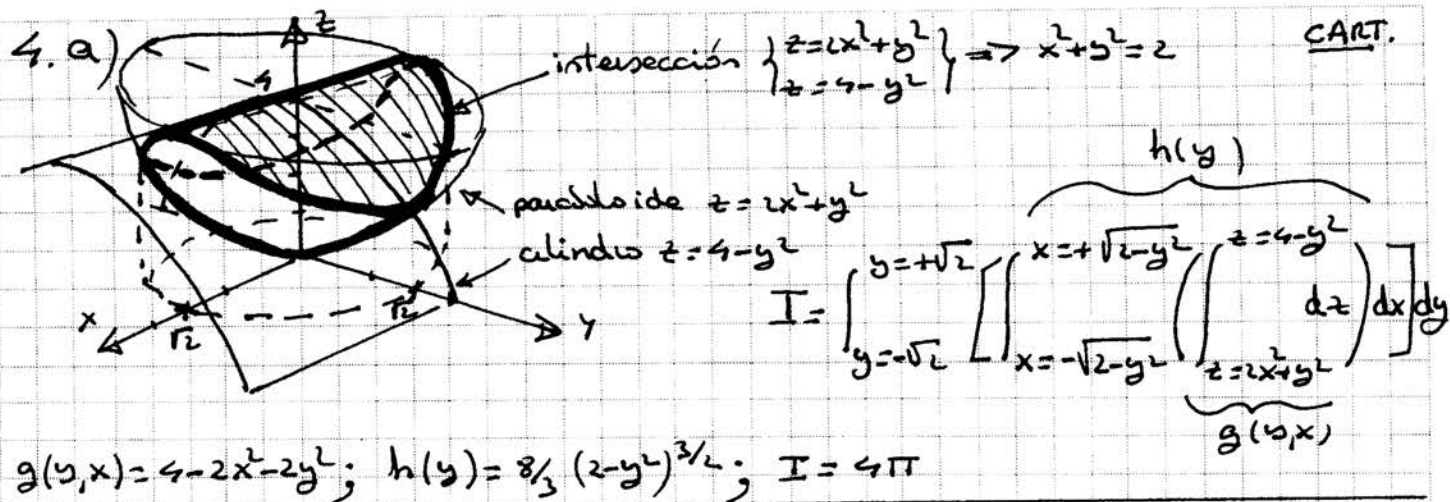 4. a)
z
CART.
4
intersección { z=2x²+y² z=4-y² } => x²+y²=2
h(y)
paraboloide z=2x²+y²
cilindro z=4-y²
x
√2
√2
y
I = ∫_{y=-√2}^{y=+√2} [ ∫_{x=-√(2-y²)}^{x=+√(2-y²)} ( ∫_{z=2x²+y²}^{z=4-y²} dz ) dx ] dy
g(y,x)
g(y,x)=4-2x²-2y²; h(y)=8/3 (2-y²)^{3/2}; I=4π